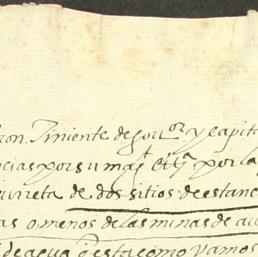 ron. Tiniente de gou.or y capita
cias por su mag.t etz.a por la
urreta de dos sitios de estanc
as o menos de las minas de au
de agua q esta como Vamos